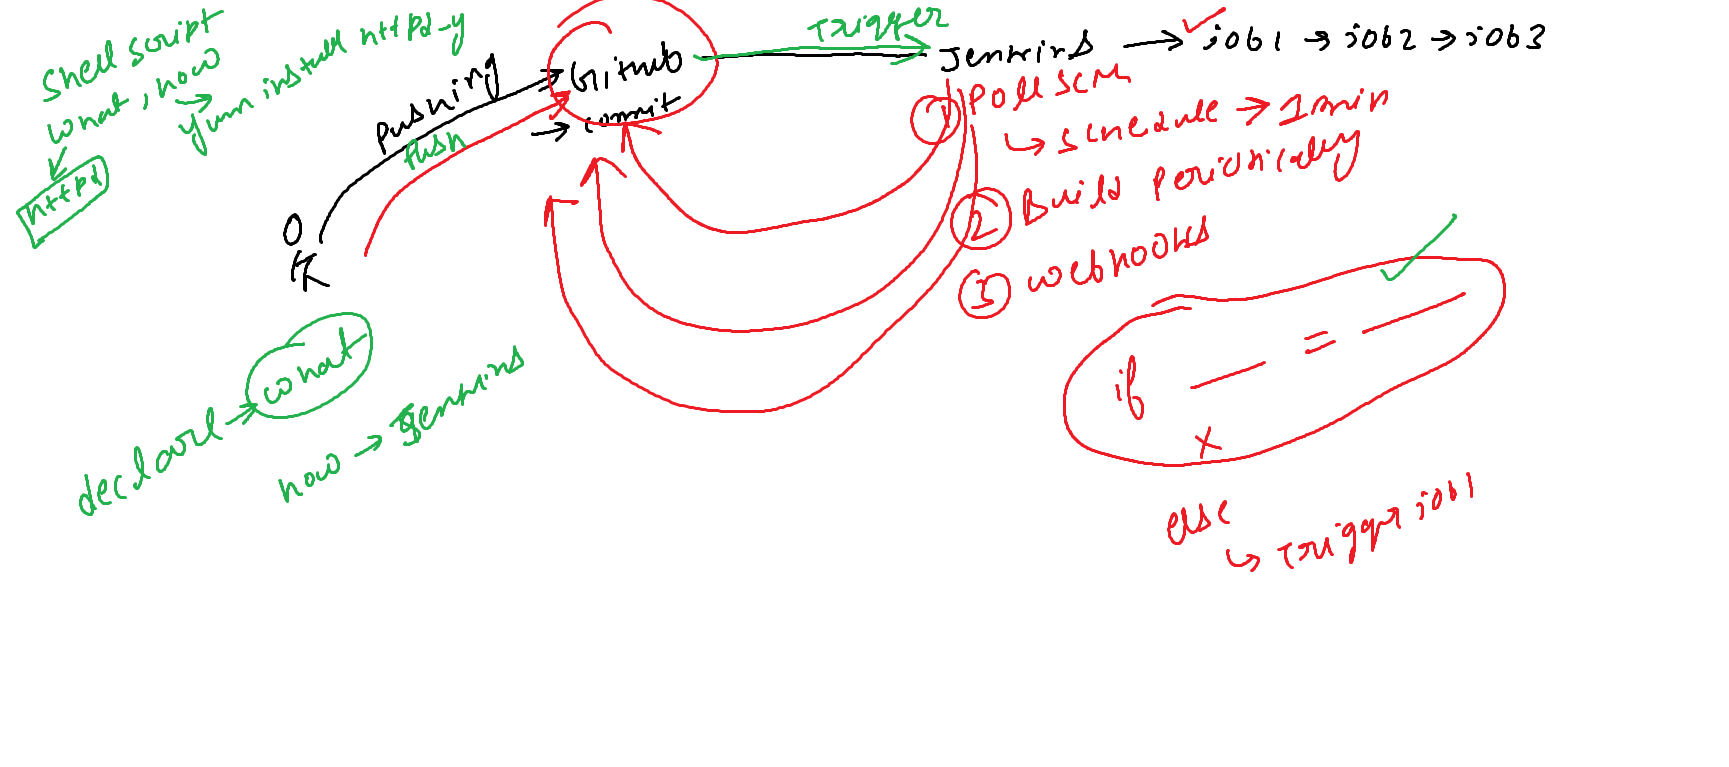 Shell script
what, how
→ yum install httpd -y
httpd
pushing
push
Github
→ commit
Trigger
Jenkins → job1 → job2 → job3
① Poll SCM
↳ schedule → 1 min
② Build periodically
③ webhooks
if — = —
x
else
↳ Trigger job1
declare → what
how → Jenkins